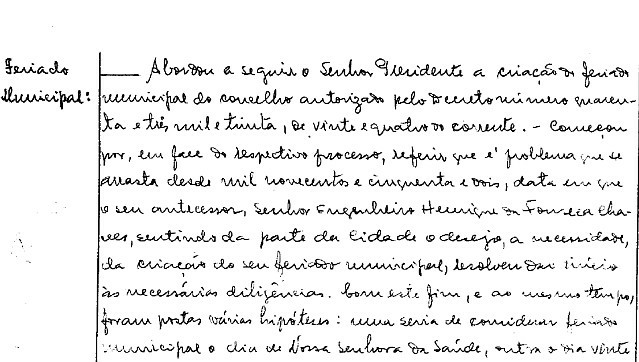 Feriado
Municipal:
____ Abordou a seguir o Senhor Presidente a criação do feriado
municipal do concelho autorizado pelo Decreto número quaren-
ta e três mil e trinta, de vinte e quatro do corrente. - Começou
por, em face do respectivo processo, referir que é problema que se
arrasta desde mil novecentos e cinquenta e dois, data em que
o seu antecessor, Senhor Engenheiro Henrique da Fonseca Cha-
ves, sentindo da parte da Cidade o desejo, a necessidade,
da criação do seu feriado municipal, resolveu dar início
às necessárias diligências. Com este fim, e ao mesmo tempo,
foram postas várias hipóteses: uma seria de considerar feriado
municipal o dia de Nossa Senhora da Saúde, outra o dia vinte